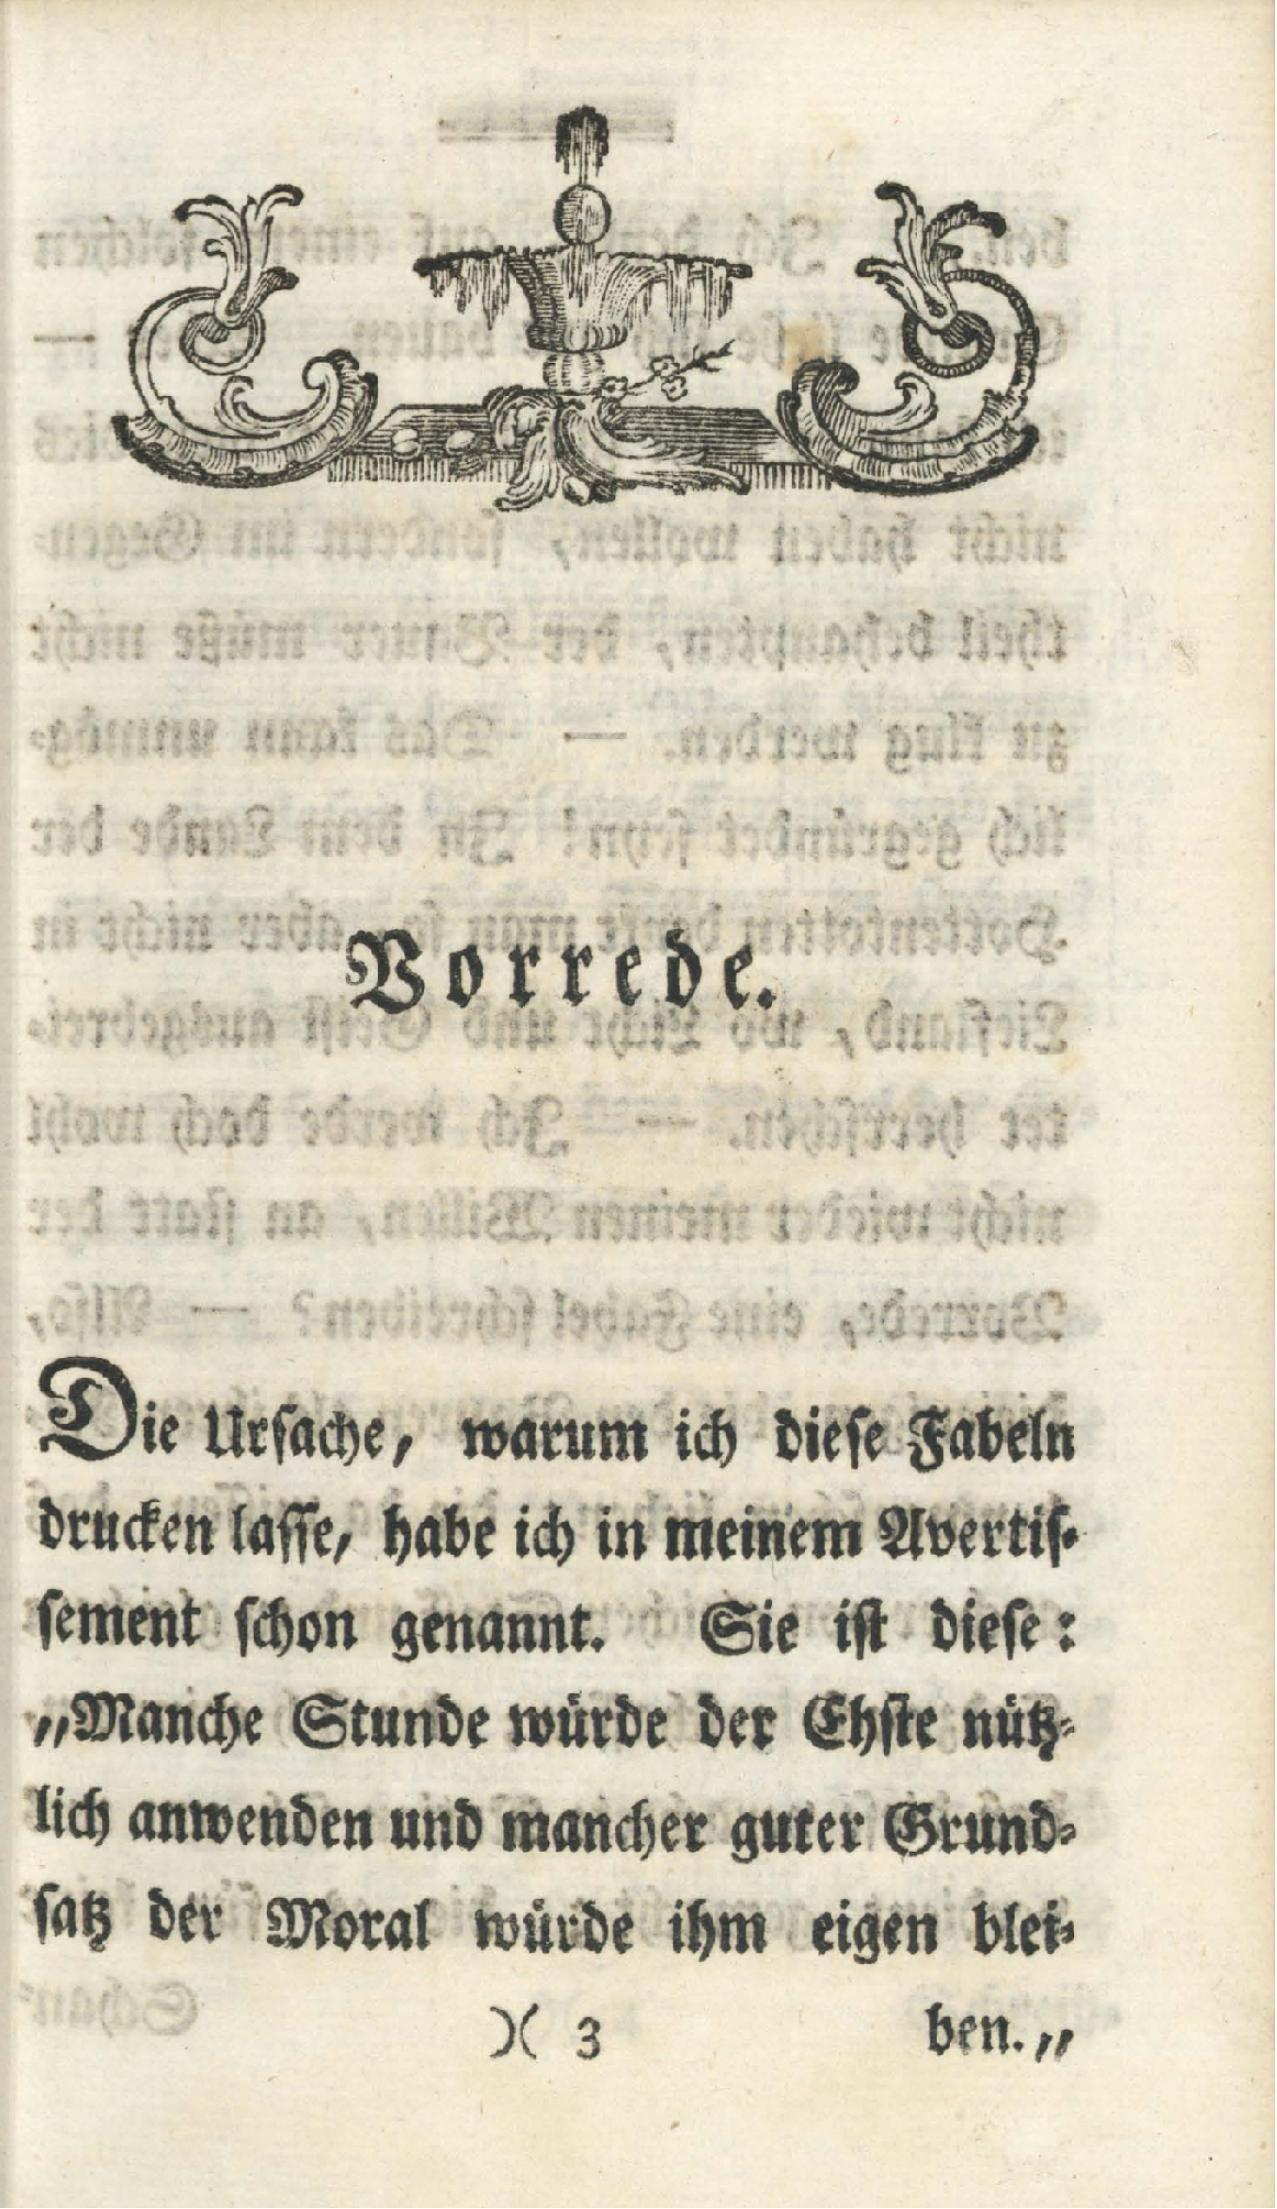 Vorrede.
Die Urſache, warum ich dieſe Fabeln
drucken laſſe, habe ich in meinem Avertiſ-
ſement ſchon genannt. Sie iſt dieſe:
„Manche Stunde würde der Ehſte nütz-
lich anwenden und mancher guter Grund-
ſatz der Moral würde ihm eigen blei-
)( 3 ben.„